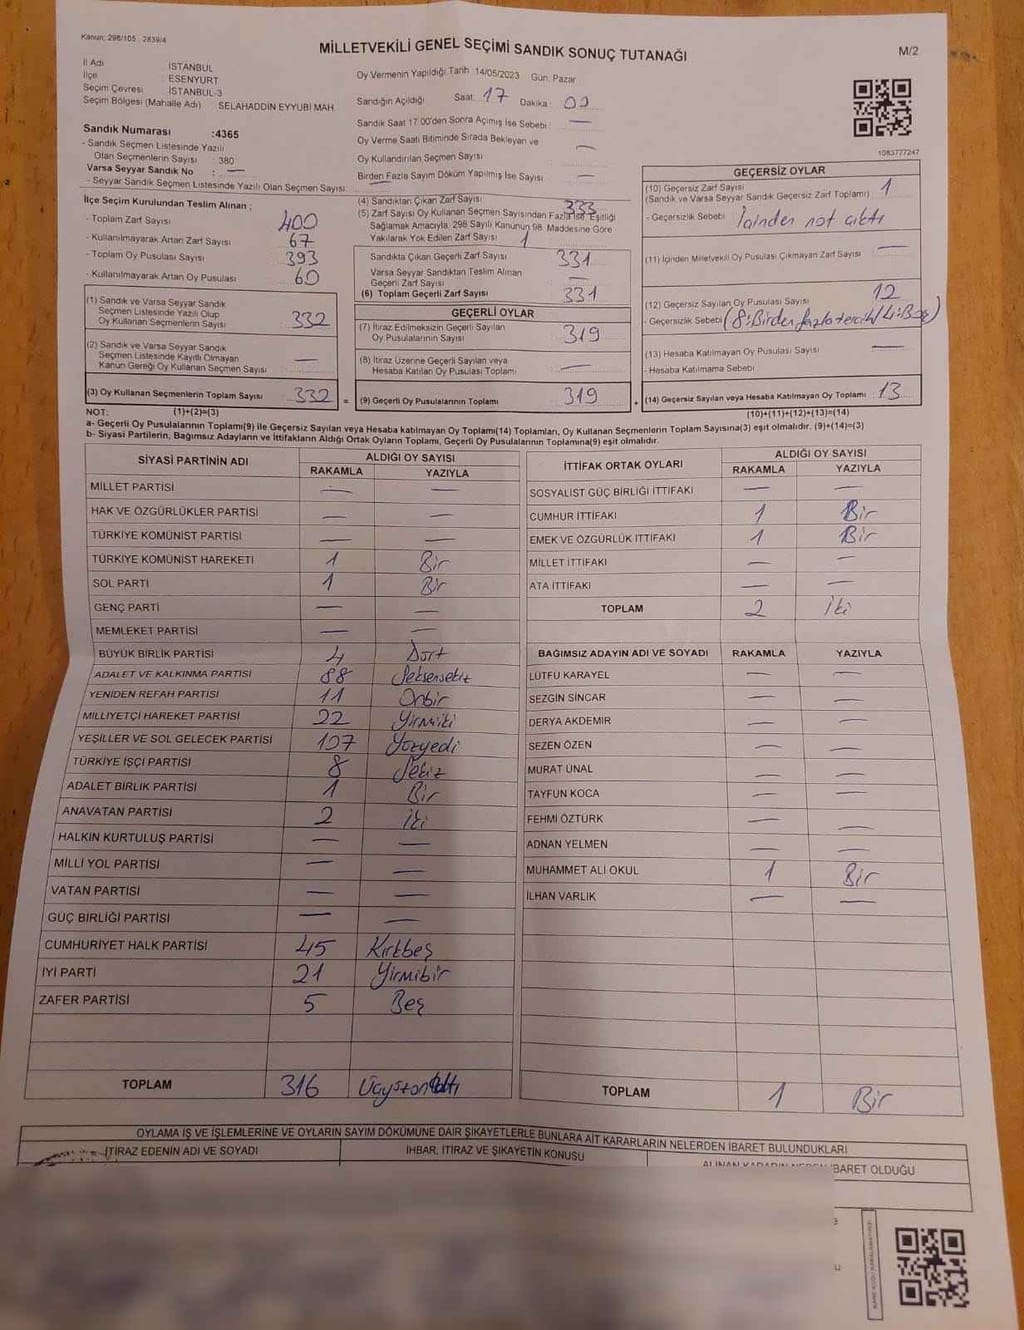 Kanun: 298/105 , 2839/4
MİLLETVEKİLİ GENEL SEÇİMİ SANDIK SONUÇ TUTANAĞI
M/2
İl Adı İSTANBUL
İlçe ESENYURT
Seçim Çevresi İSTANBUL-3
Seçim Bölgesi (Mahalle Adı) : SELAHADDİN EYYUBİ MAH.
Oy Vermenin Yapıldığı Tarih : 14/05/2023 Gün: Pazar
Sandığın Açıldığı Saat 17 Dakika : 00
Sandık Saat 17.00'den Sonra Açılmış İse Sebebi : —
Oy Verme Saati Bitiminde Sırada Bekleyen ve
Oy Kullandırılan Seçmen Sayısı —
Birden Fazla Sayım Döküm Yapılmış İse Sayısı —
1083777247
Sandık Numarası :4365
- Sandık Seçmen Listesinde Yazılı
Olan Seçmenlerin Sayısı : 380
Varsa Seyyar Sandık No : —
- Seyyar Sandık Seçmen Listesinde Yazılı Olan Seçmen Sayısı: —
İlçe Seçim Kurulundan Teslim Alınan ;
- Toplam Zarf Sayısı 400
- Kullanılmayarak Artan Zarf Sayısı 67
- Toplam Oy Pusulası Sayısı 393
- Kullanılmayarak Artan Oy Pusulası 60
(1) Sandık ve Varsa Seyyar Sandık
Seçmen Listesinde Yazılı Olup
Oy Kullanan Seçmenlerin Sayısı 332
(2) Sandık ve Varsa Seyyar Sandık
Seçmen Listesinde Kayıtlı Olmayan
Kanun Gereği Oy Kullanan Seçmen Sayısı —
(3) Oy Kullanan Seçmenlerin Toplam Sayısı 332 =
(4) Sandıktan Çıkan Zarf Sayısı 333
(5) Zarf Sayısı Oy Kullanan Seçmen Sayısından Fazla ise, Eşitliği
Sağlamak Amacıyla, 298 Sayılı Kanunun 98. Maddesine Göre
Yakılarak Yok Edilen Zarf Sayısı 1
Sandıkta Çıkan Geçerli Zarf Sayısı 331
Varsa Seyyar Sandıktan Teslim Alınan
Geçerli Zarf Sayısı —
(6) Toplam Geçerli Zarf Sayısı 331
GEÇERLİ OYLAR
(7) İtiraz Edilmeksizin Geçerli Sayılan
Oy Pusulalarının Sayısı 319
(8) İtiraz Üzerine Geçerli Sayılan veya
Hesaba Katılan Oy Pusulası Toplamı —
(9) Geçerli Oy Pusulalarının Toplamı 319 +
GEÇERSİZ OYLAR
(10) Geçersiz Zarf Sayısı 1
(Sandık ve Varsa Seyyar Sandık Geçersiz Zarf Toplamı)
- Geçersizlik Sebebi İçinden not çıktı
(11) İçinden Milletvekili Oy Pusulası Çıkmayan Zarf Sayısı —
(12) Geçersiz Sayılan Oy Pusulası Sayısı 12
- Geçersizlik Sebebi (8:Birden fazla tercih/4:Boş)
(13) Hesaba Katılmayan Oy Pusulası Sayısı —
- Hesaba Katılmama Sebebi
(14) Geçersiz Sayılan veya Hesaba Katılmayan Oy Toplamı : 13
NOT: (1)+(2)=(3) (10)+(11)+(12)+(13)=(14)
a- Geçerli Oy Pusulalarının Toplamı(9) ile Geçersiz Sayılan veya Hesaba katılmayan Oy Toplamı(14) Toplamları, Oy Kullanan Seçmenlerin Toplam Sayısına(3) eşit olmalıdır. (9)+(14)=(3)
b- Siyasi Partilerin, Bağımsız Adayların ve İttifakların Aldığı Ortak Oyların Toplamı, Geçerli Oy Pusulalarının Toplamına(9) eşit olmalıdır.
SİYASİ PARTİNİN ADI ALDIĞI OY SAYISI
RAKAMLA YAZIYLA
MİLLET PARTİSİ — —
HAK VE ÖZGÜRLÜKLER PARTİSİ — —
TÜRKİYE KOMÜNİST PARTİSİ — —
TÜRKİYE KOMÜNİST HAREKETİ 1 Bir
SOL PARTİ 1 Bir
GENÇ PARTİ — —
MEMLEKET PARTİSİ — —
BÜYÜK BİRLİK PARTİSİ 4 Dört
ADALET VE KALKINMA PARTİSİ 88 Seksensekiz
YENİDEN REFAH PARTİSİ 11 Onbir
MİLLİYETÇİ HAREKET PARTİSİ 22 Yirmiiki
YEŞİLLER VE SOL GELECEK PARTİSİ 107 Yüzyedi
TÜRKİYE İŞÇİ PARTİSİ 8 Sekiz
ADALET BİRLİK PARTİSİ 1 Bir
ANAVATAN PARTİSİ 2 iki
HALKIN KURTULUŞ PARTİSİ — —
MİLLİ YOL PARTİSİ — —
VATAN PARTİSİ — —
GÜÇ BİRLİĞİ PARTİSİ — —
CUMHURİYET HALK PARTİSİ 45 Kırkbeş
İYİ PARTİ 21 Yirmibir
ZAFER PARTİSİ 5 Beş
TOPLAM 316 Üçyüzonaltı
İTTİFAK ORTAK OYLARI ALDIĞI OY SAYISI
RAKAMLA YAZIYLA
SOSYALİST GÜÇ BİRLİĞİ İTTİFAKI — —
CUMHUR İTTİFAKI 1 Bir
EMEK VE ÖZGÜRLÜK İTTİFAKI 1 Bir
MİLLET İTTİFAKI — —
ATA İTTİFAKI — —
TOPLAM 2 iki
BAĞIMSIZ ADAYIN ADI VE SOYADI RAKAMLA YAZIYLA
LÜTFÜ KARAYEL — —
SEZGİN SİNCAR — —
DERYA AKDEMİR — —
SEZEN ÖZEN — —
MURAT ÜNAL — —
TAYFUN KOCA — —
FEHMİ ÖZTÜRK — —
ADNAN YELMEN — —
MUHAMMET ALİ OKUL 1 Bir
İLHAN VARLIK — —
TOPLAM 1 Bir
OYLAMA İŞ VE İŞLEMLERİNE VE OYLARIN SAYIM DÖKÜMÜNE DAİR ŞİKAYETLERLE BUNLARA AİT KARARLARIN NELERDEN İBARET BULUNDUKLARI
İTİRAZ EDENİN ADI VE SOYADI İHBAR, İTİRAZ VE ŞİKAYETİN KONUSU ALINAN KARARIN NEDEN İBARET OLDUĞU